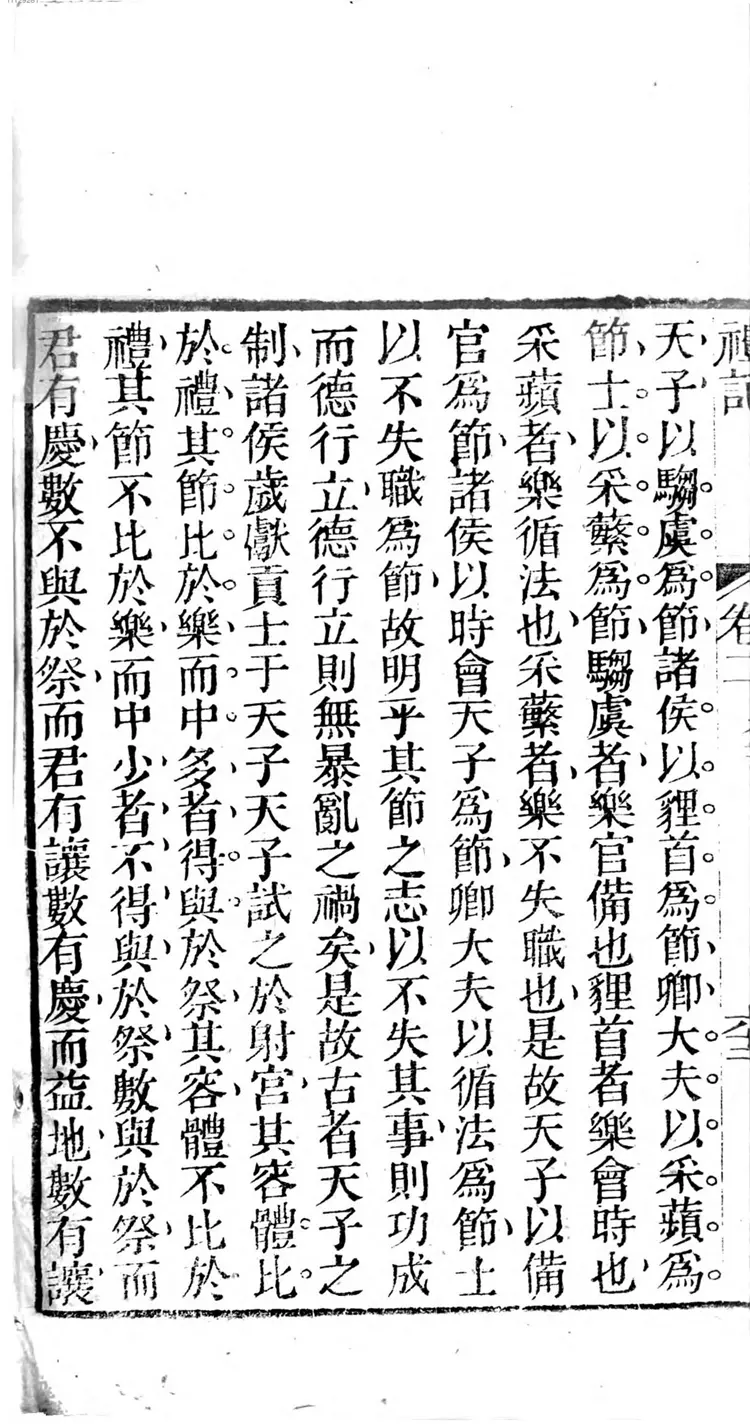 禮記
卷二
天子以騶虞爲節諸侯以貍首爲節卿大夫以采蘋爲
節士以采蘩爲節騶虞者樂官備也貍首者樂會時也
采蘋者樂循法也采蘩者樂不失職也是故天子以備
官爲節諸侯以時會天子爲節卿大夫以循法爲節士
以不失職爲節故明乎其節之志以不失其事則功成
而德行立德行立則無暴亂之禍矣是故古者天子之
制諸侯歲獻貢士于天子天子試之於射宮其容體比
於禮其節比於樂而中多者得與於祭其容體不比於
禮其節不比於樂而中少者不得與於祭數與於祭而
君有慶數不與於祭而君有讓數有慶而益地數有讓